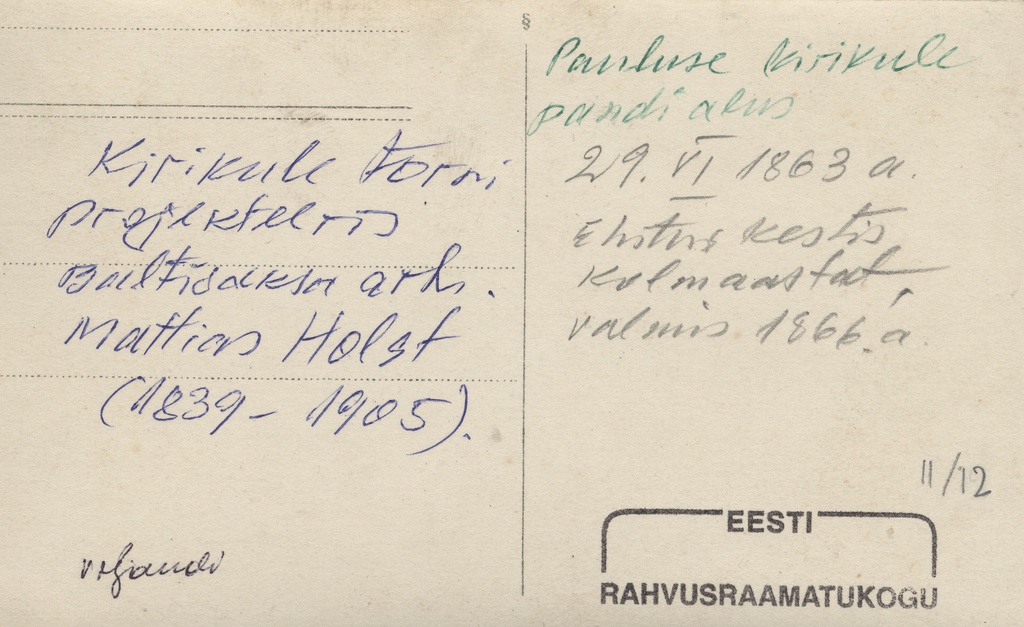 §
Kirikule torni
projekteeris
Baltisaksa arh.
Mattias Holst
(1839 - 1905).
Viljandi
Pauluse kirikule
pandi alus
29. VI 1863 a.
Ehitus kestis
kolmaastat,
valmis 1866. a.
11/12
EESTI
RAHVUSRAAMATUKOGU